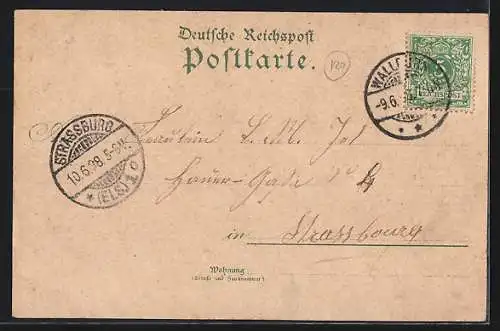 Deutsche Reichspost
Postkarte.
120
WALLBURG
-9.6.
5
REICHSPOST
STRASSBURG
10.6.98. 5-6N.
* (ELS) 1 o
Fräulein L. M. Jol
Hauer-Gasse No 4
in Strassbourg
Wohnung
(Straße und Hausnummer)